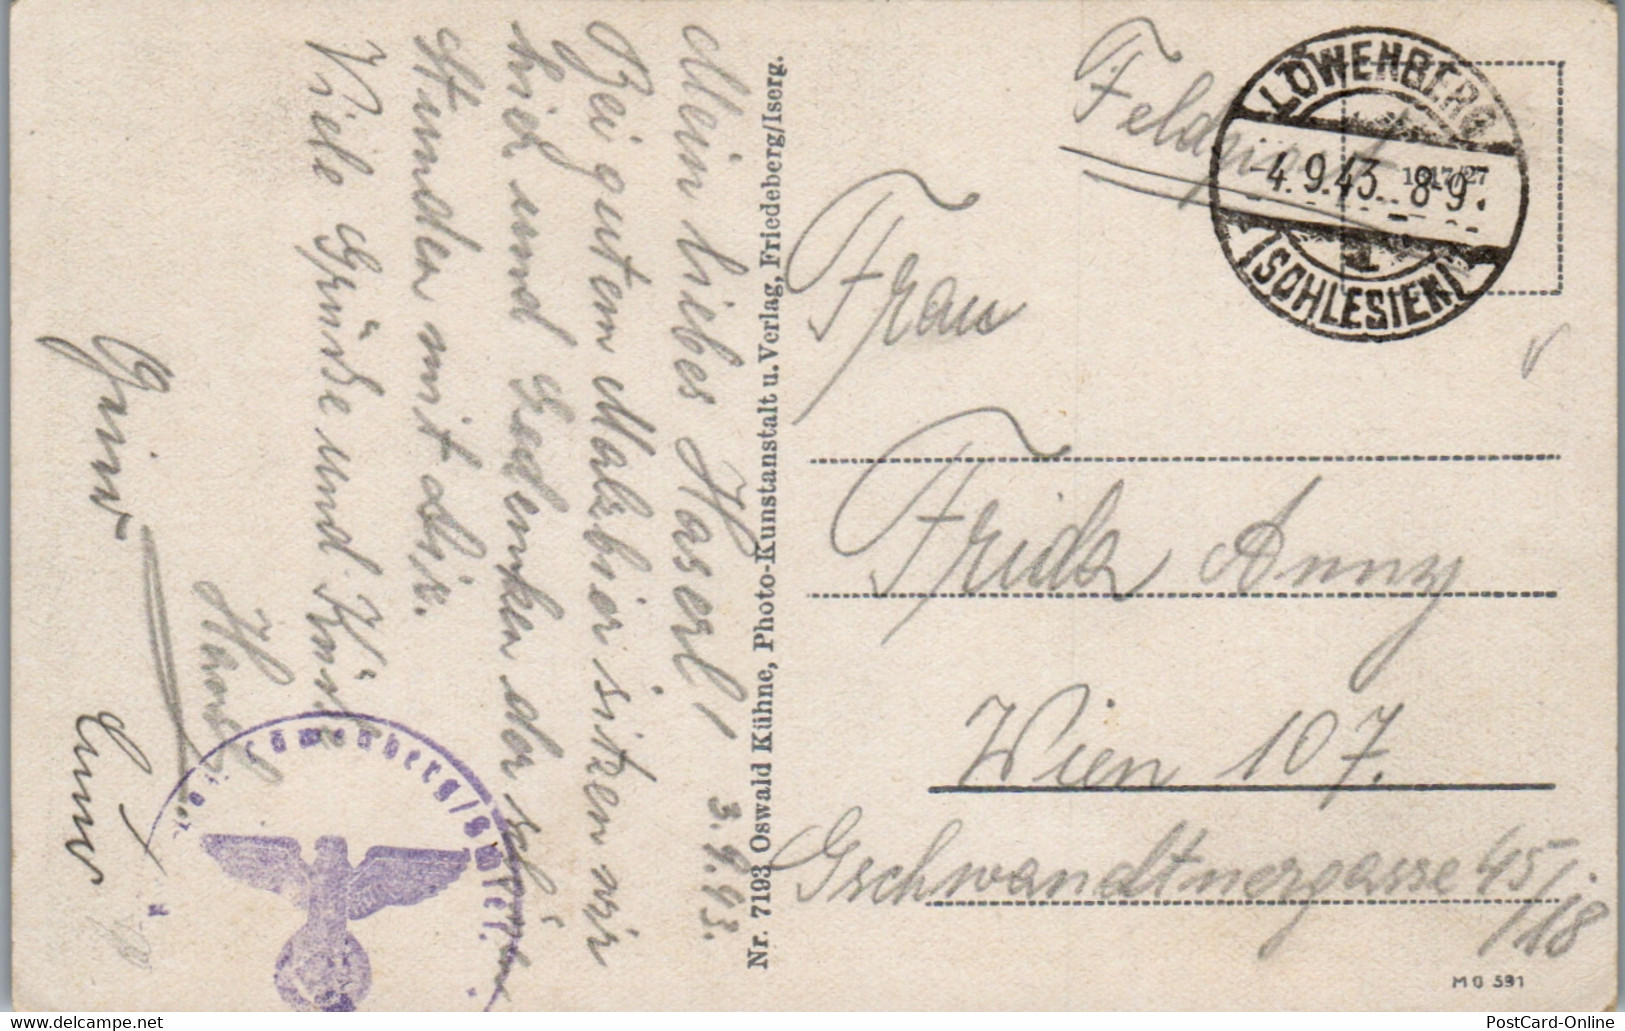 Mein liebes Haserl! 3.9.43.
Bei gutem Malzbier sitzen wir
hier und gedenken der schönen
Stunden mit dir.
Viele Grüße und Küsse
Hansl
Nr. 7193 Oswald Kühne, Photo-Kunstanstalt u. Verlag, Friedeberg/Iserg.
Feldpost
LÖWENBERG
-4.9.43. 8-9.
(SCHLESIEN)
Frau
Frida Anny
Wien 107.
Gschwandtnergasse 45/18
M 0 591
PostCard-Online